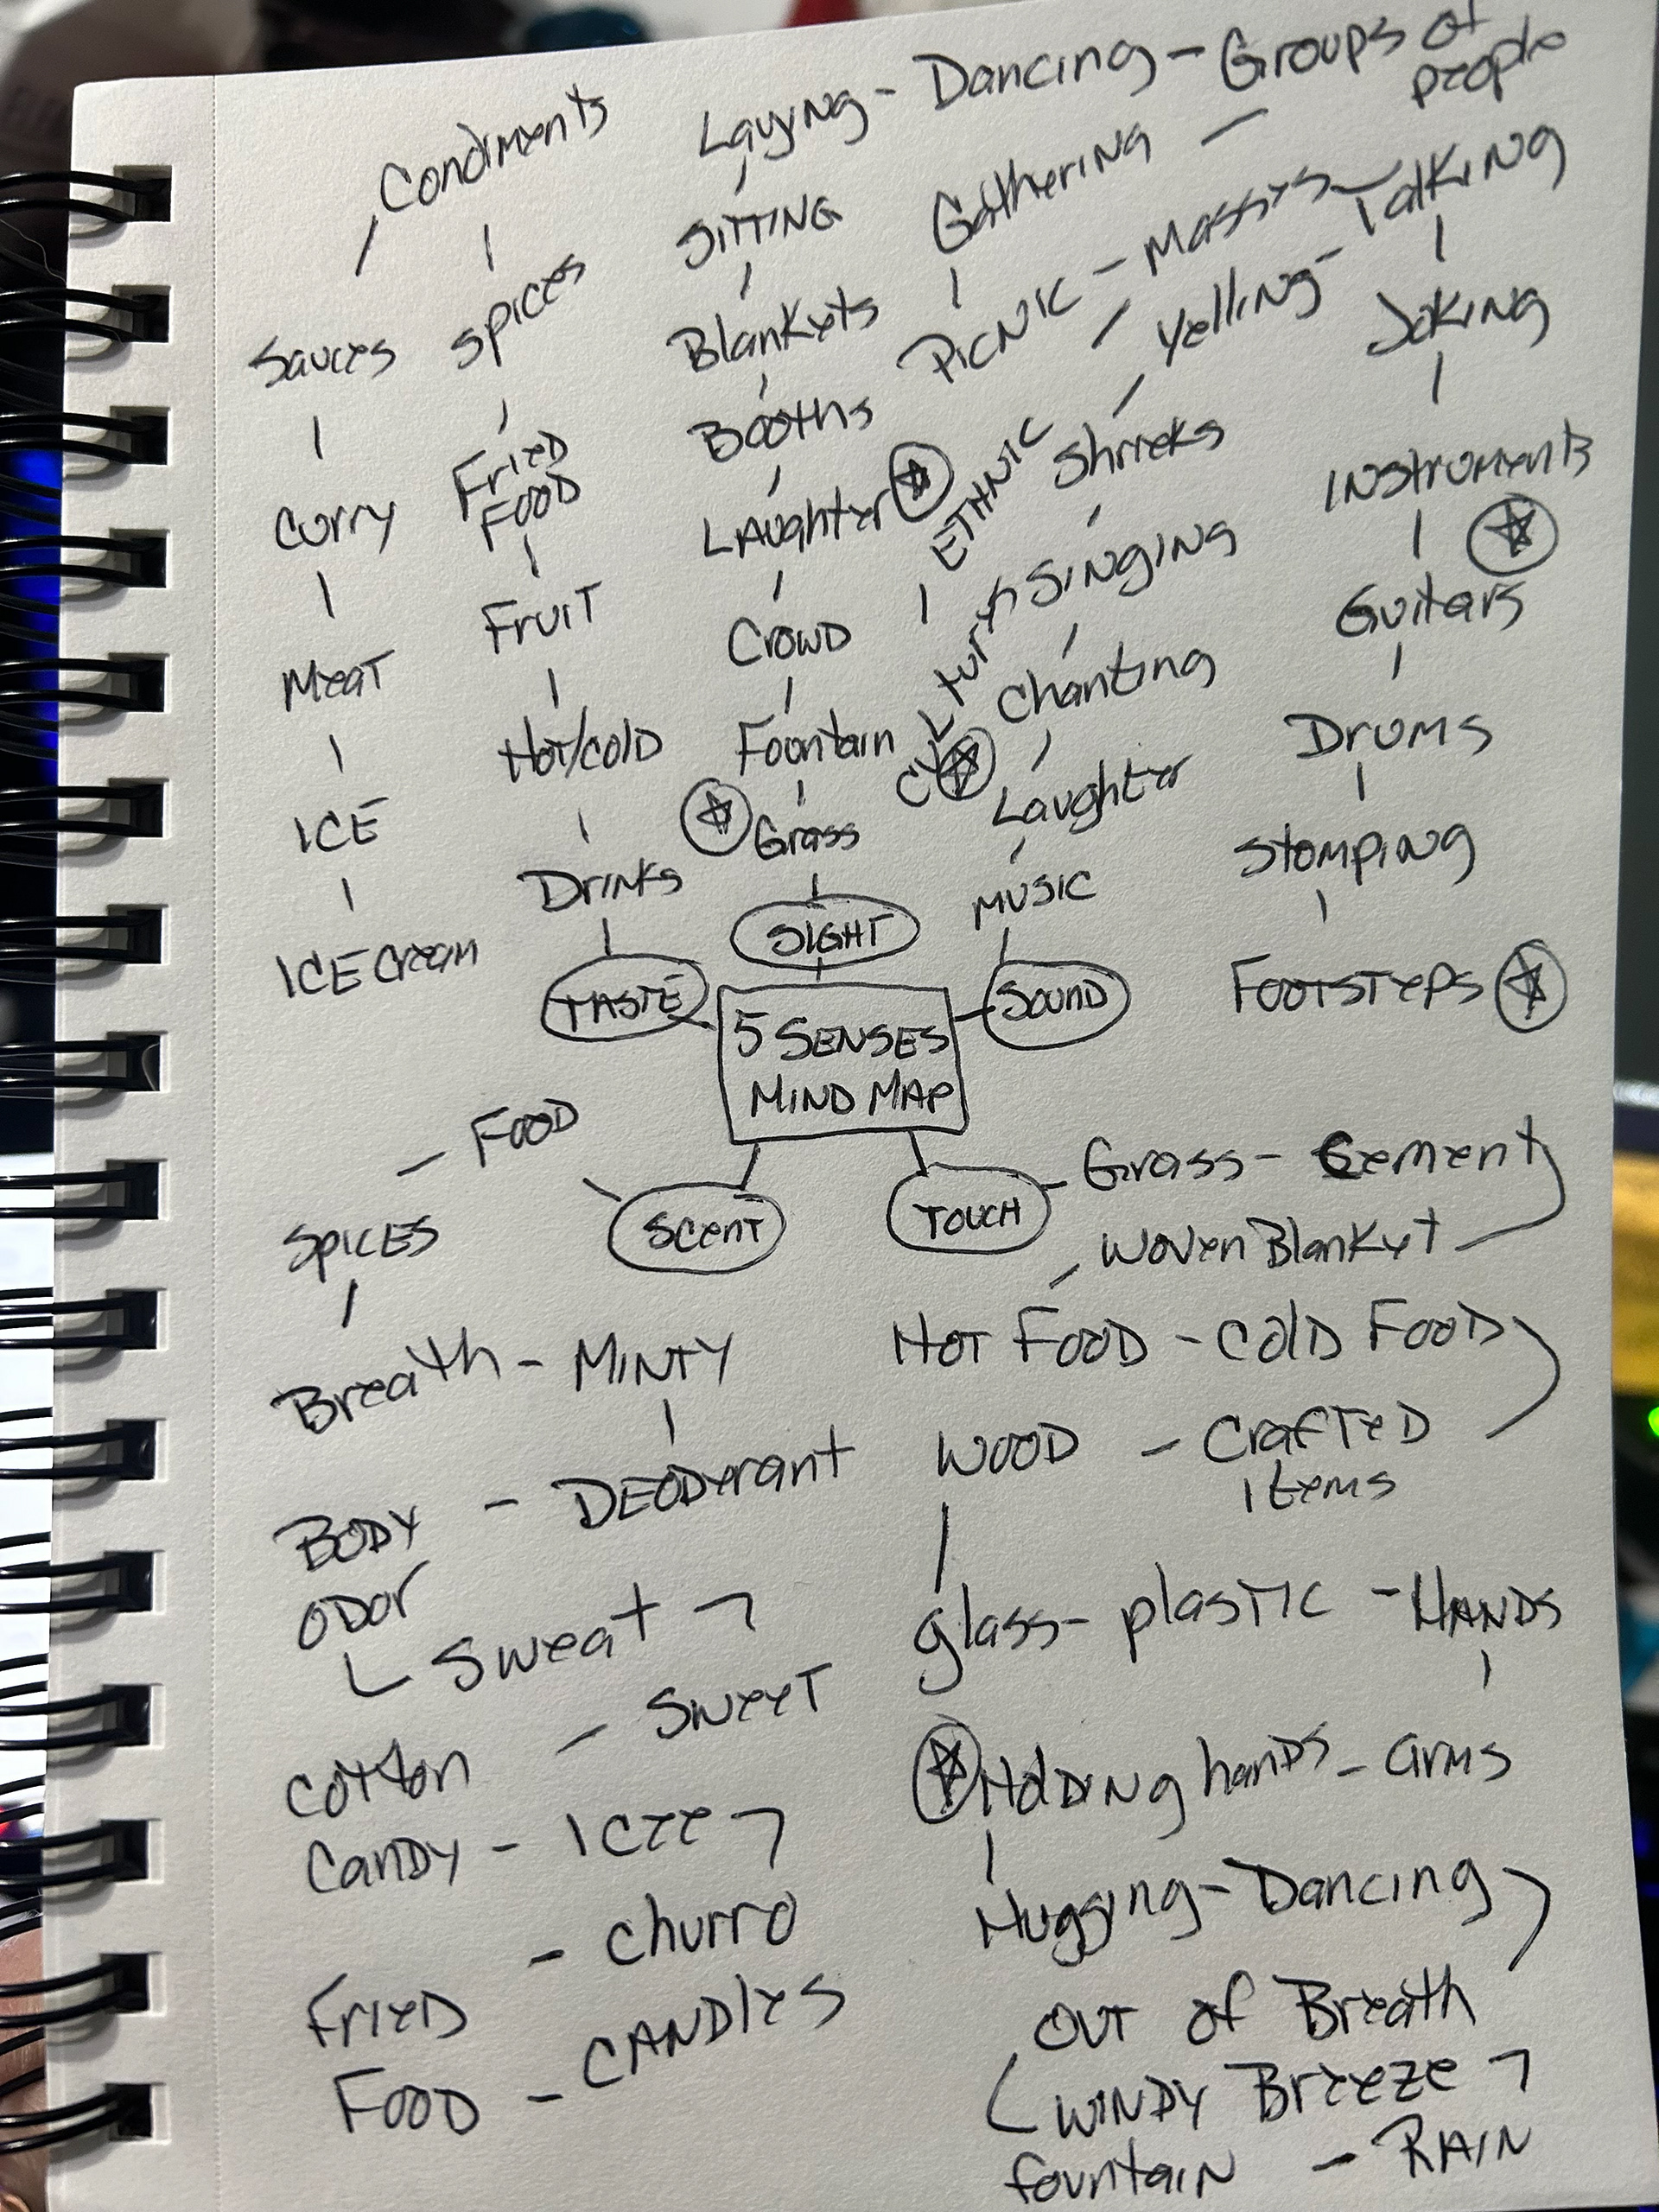 Condiments
Sauces
Curry
Meat
ICE
ICE Cream
Spices
Fried
Food
Fruit
Hot/Cold
Drinks
TASTE
Laying - Dancing - Groups of
people
SITTING
Blankets
Booths
Laughter
Crowd
Fountain
Grass
SIGHT
Gathering
PICNIC - Masses - Talking
ETHNIC
Cultures
Yelling -
Shrieks
Singing
Chanting
Laughter
MUSIC
SOUND
Joking
Instruments
Guitars
Drums
Stomping
Footsteps
5 SENSES
MIND MAP
- FOOD
SCENT
SPICES
Breath - MINTY
BODY - DEODerant
ODOr
Sweat
Cotton - Sweet
Candy - ICEE
- Churro
Fried
Food - CANDles
TOUCH - Grass - Cement
Woven Blanket
Hot Food - Cold Food
Wood - Crafted
Items
glass - plastic - Hands
Holding hands - arms
Hugging - Dancing
Out of Breath
WINDY Breeze
fountain - RAIN